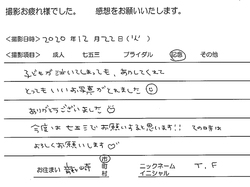 撮影お疲れ様でした。 感想をお願いいたします。
<撮影日時> 2020年 12月 22日 (火)
<撮影項目> 成人 七五三 ブライダル 記念 その他
子どもが泣いてしまっても、あやしてくれて
とってもいいお写真がとれました
ありがとうございました
今度は七五三でお願いすると思います!! その時は
よろしくお願いします
お住まい 市 町 村 ニックネーム イニシャル T.F